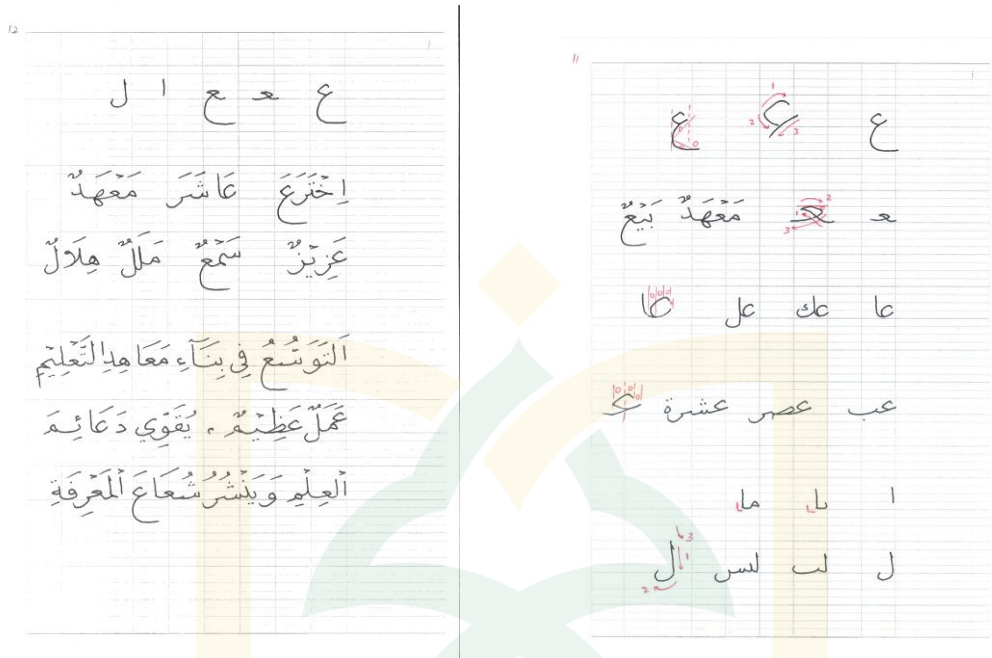 12
ع ععع ا ل
اِخْتَرَعَ عَاشَرَ مَعْهَدٌ
عَزِيْزٌ سَمْعٌ مَلَلٌ هِلَالٌ
اَلتَّوَسُّعُ فِي بِنَآءِ مَعَاهِدِ التَّعْلِيْمِ
عَمَلٌ عَظِيْمٌ ، يُقَوِّي دَعَائِمَ
الْعِلْمِ وَيَنْشُرُ شُعَاعَ الْمَعْرِفَةِ
11
ع ع ع
1
2
3
ـعـ مَعْهَدٌ بَيْعٌ
2
1
3
عا عك عل كا
عب عصر عشرة عـ
ا با ما
ل لب لس ل
3
1
2